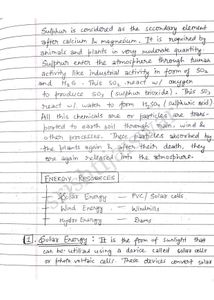 Sulphur is considered as the secondary element
after calcium & magnesium. It is required by
animals and plants in very moderate quantity
Sulphur enter the atmosphere through human
activity like industrial activity in form of SO2
and H2S. This SO2 react w/ oxygen
to produce SO3 (sulphur trioxide). This SO3
react w/ water to form H2SO4 (sulphuric acid)
All this chemicals are or particles are trans-
ported to earth soil through rain, wind &
other processes. These particles absorbed by
the plants again & after their death, they
are again released into the atmosphere.
ENERGY RESOURCES
Solar Energy — PVC / Solar cells
Wind Energy — Windmills
Hydro Energy — Dams
1. Solar Energy: It is the form of sunlight that
can be utilised using a device called solar cells
or photo voltaic cells. These devices convert solar